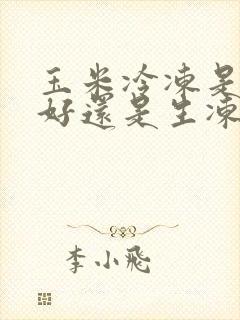 玉米冷凍是
好還是生凍
李小飛